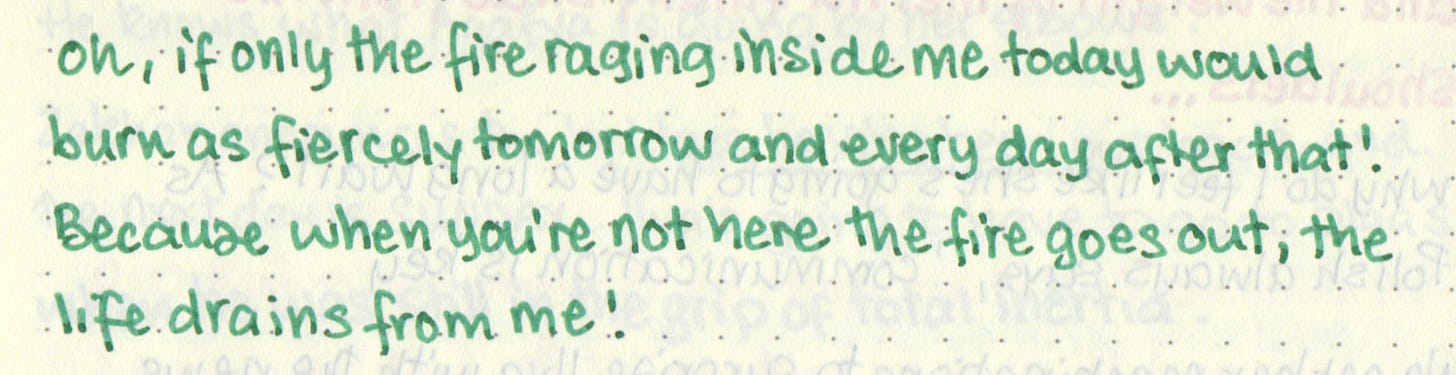 oh, if only the fire raging inside me today would
burn as fiercely tomorrow and every day after that!
Because when you're not here the fire goes out, the
life drains from me!